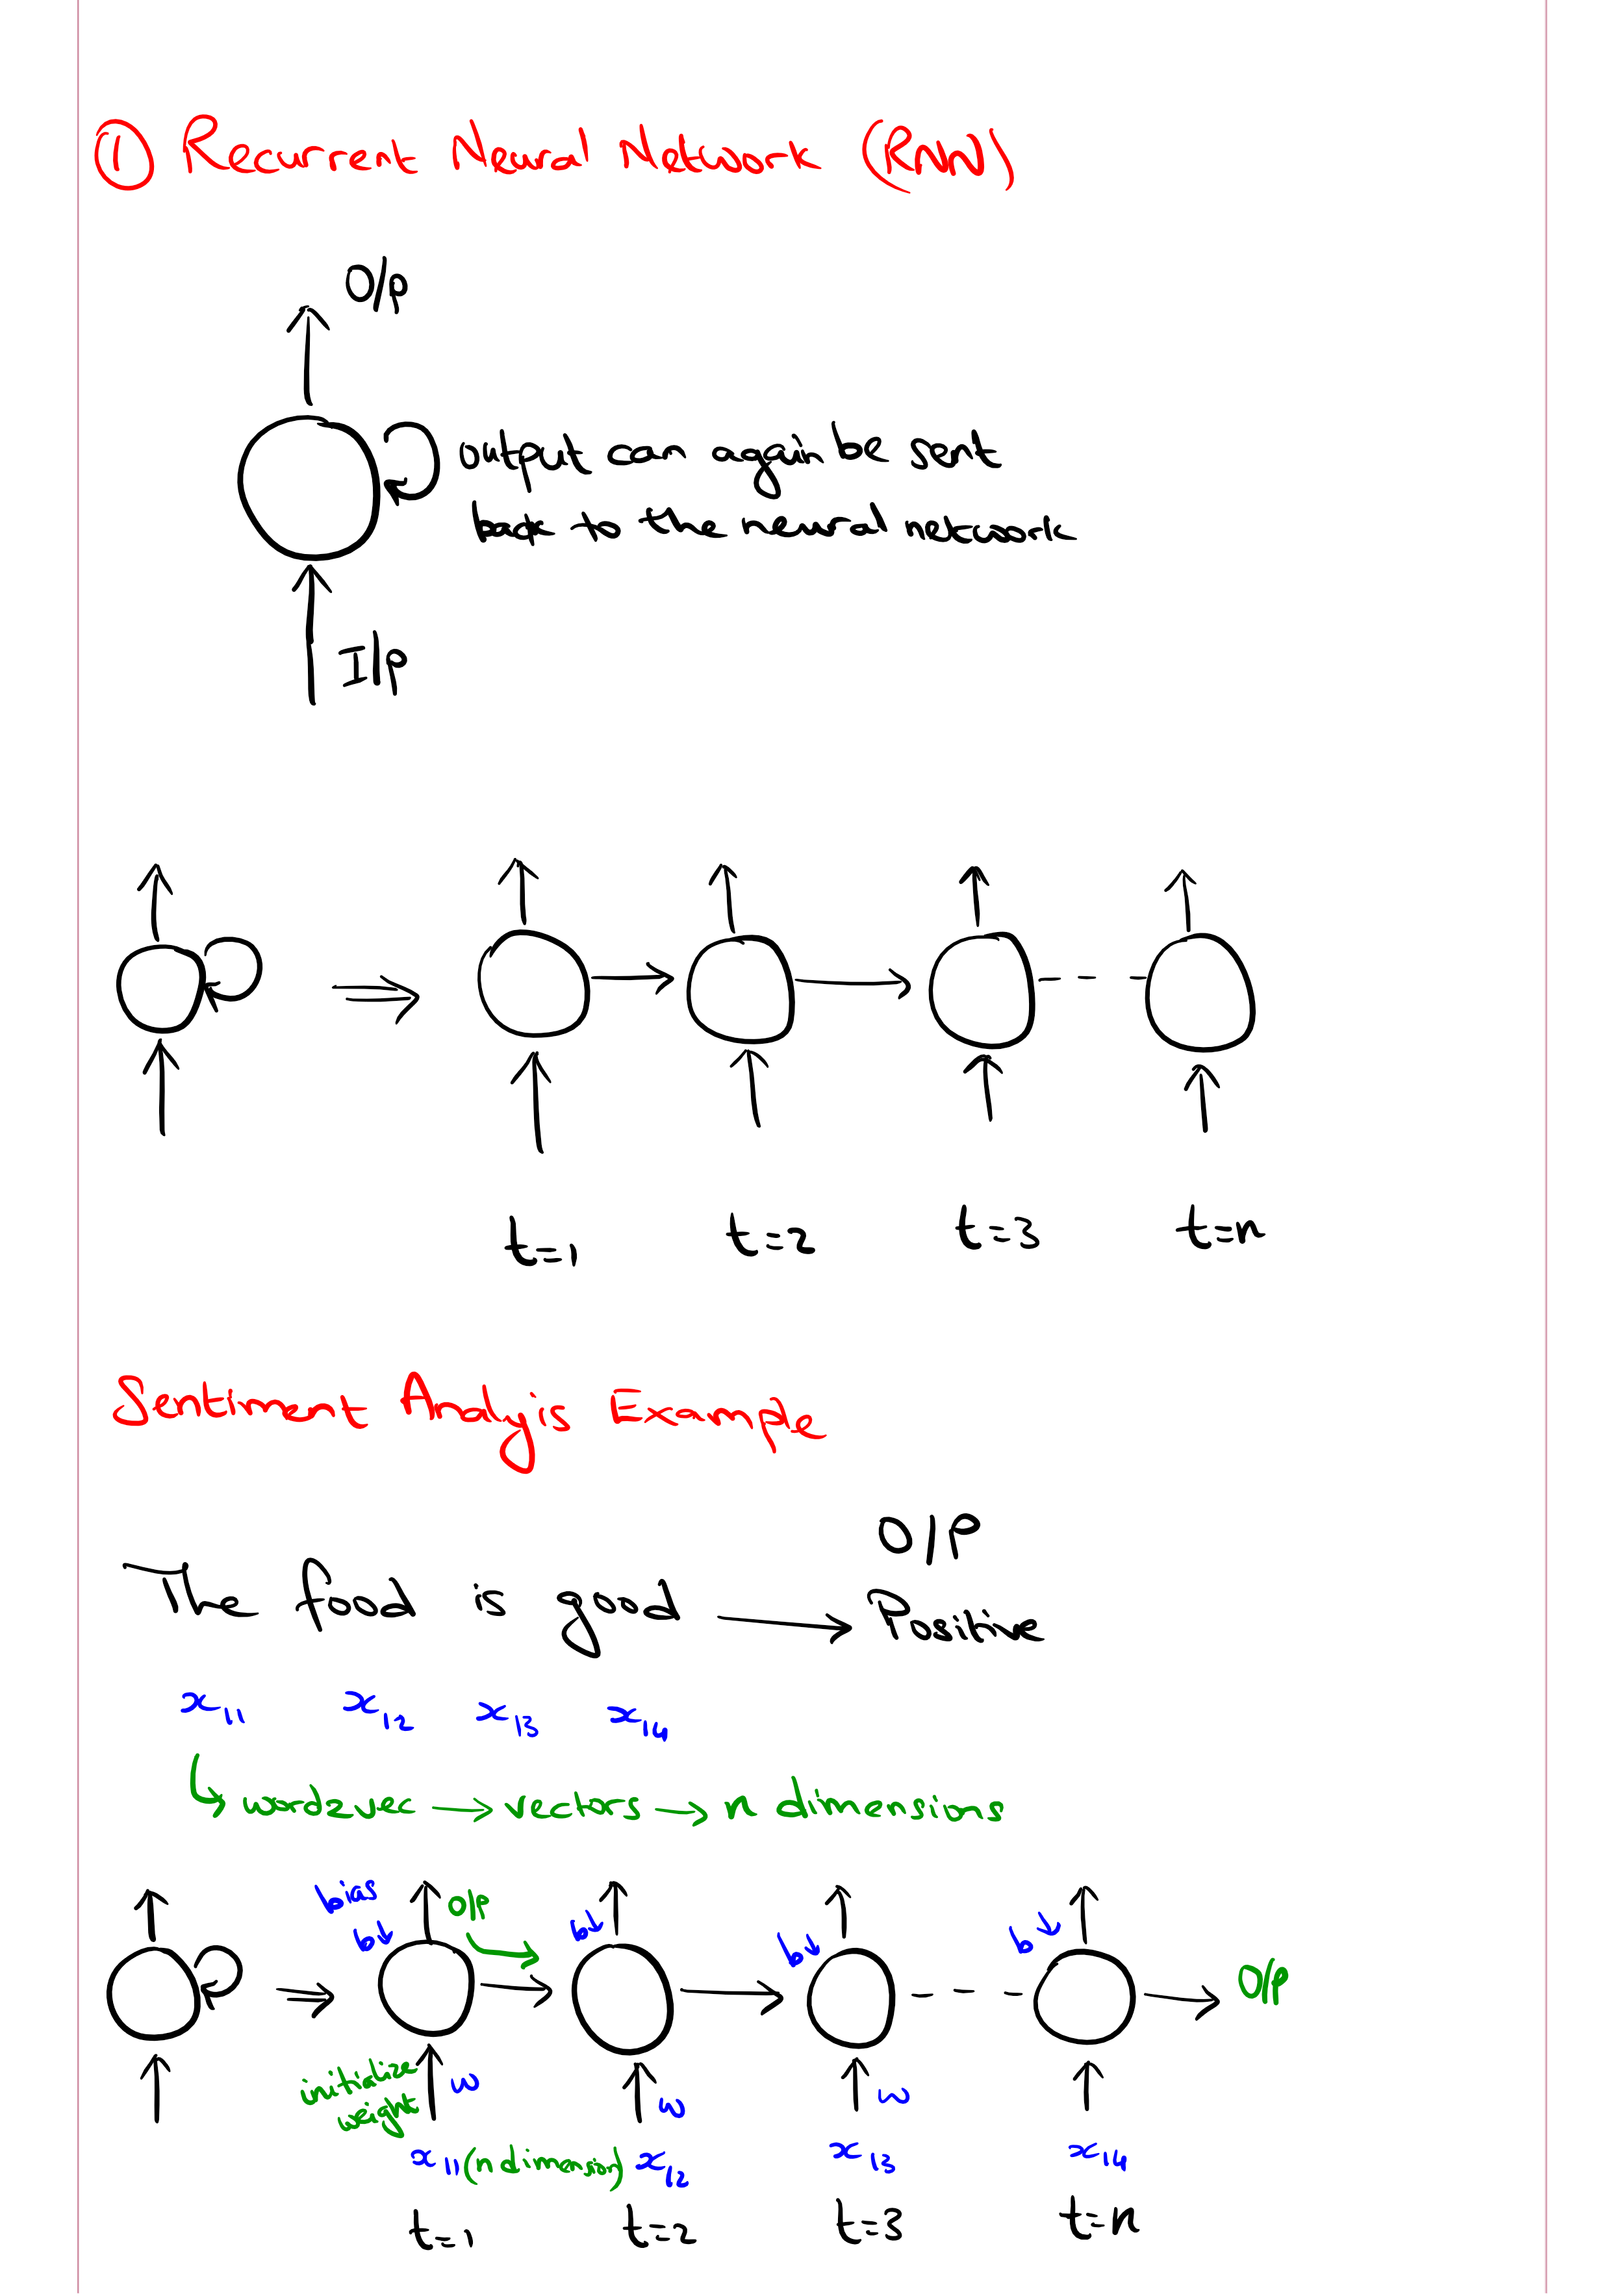 ① Recurrent Neural Network (RNN)
O/P
output can again be sent
back to the neural network
I/P
t=1 t=2 t=3 t=n
Sentiment Analysis Example
O/P
The food is good → Positive
x11 x12 x13 x14
↳ word2vec → vectors → n dimensions
bias
O/P
b b b b
O/P
initialize
weight
w w w
x11 (n dimension) x12 x13 x14
t=1 t=2 t=3 t=n